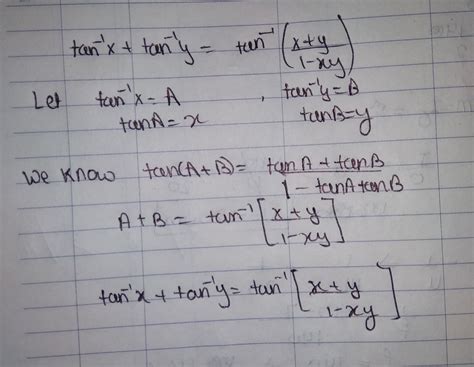 tan⁻¹x + tan⁻¹y = tan⁻¹(x+y / 1-xy)
Let tan⁻¹x = A , tan⁻¹y = B
tanA = x tanB = y
we know tan(A+B) = tanA + tanB / 1 - tanA tanB
A+B = tan⁻¹[x+y / 1-xy]
tan⁻¹x + tan⁻¹y = tan⁻¹[x+y / 1-xy]